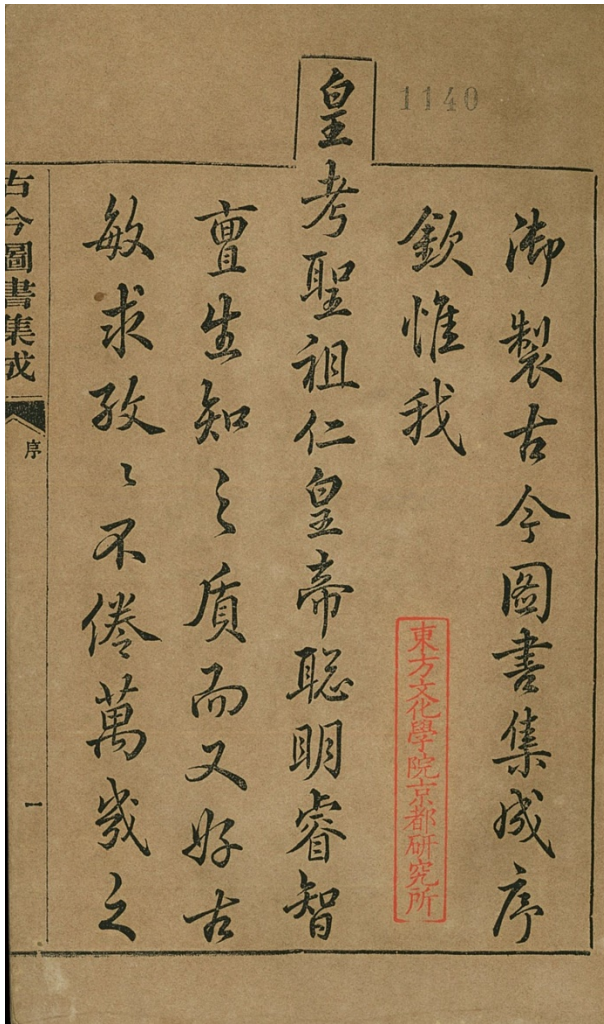 1140
御製古今圖書集成序
欽惟我
皇考聖祖仁皇帝聰明睿智
亶生知之質而又好古
敏求孜〻不倦萬幾之
東方文化學院京都研究所
古今圖書集成
序
一